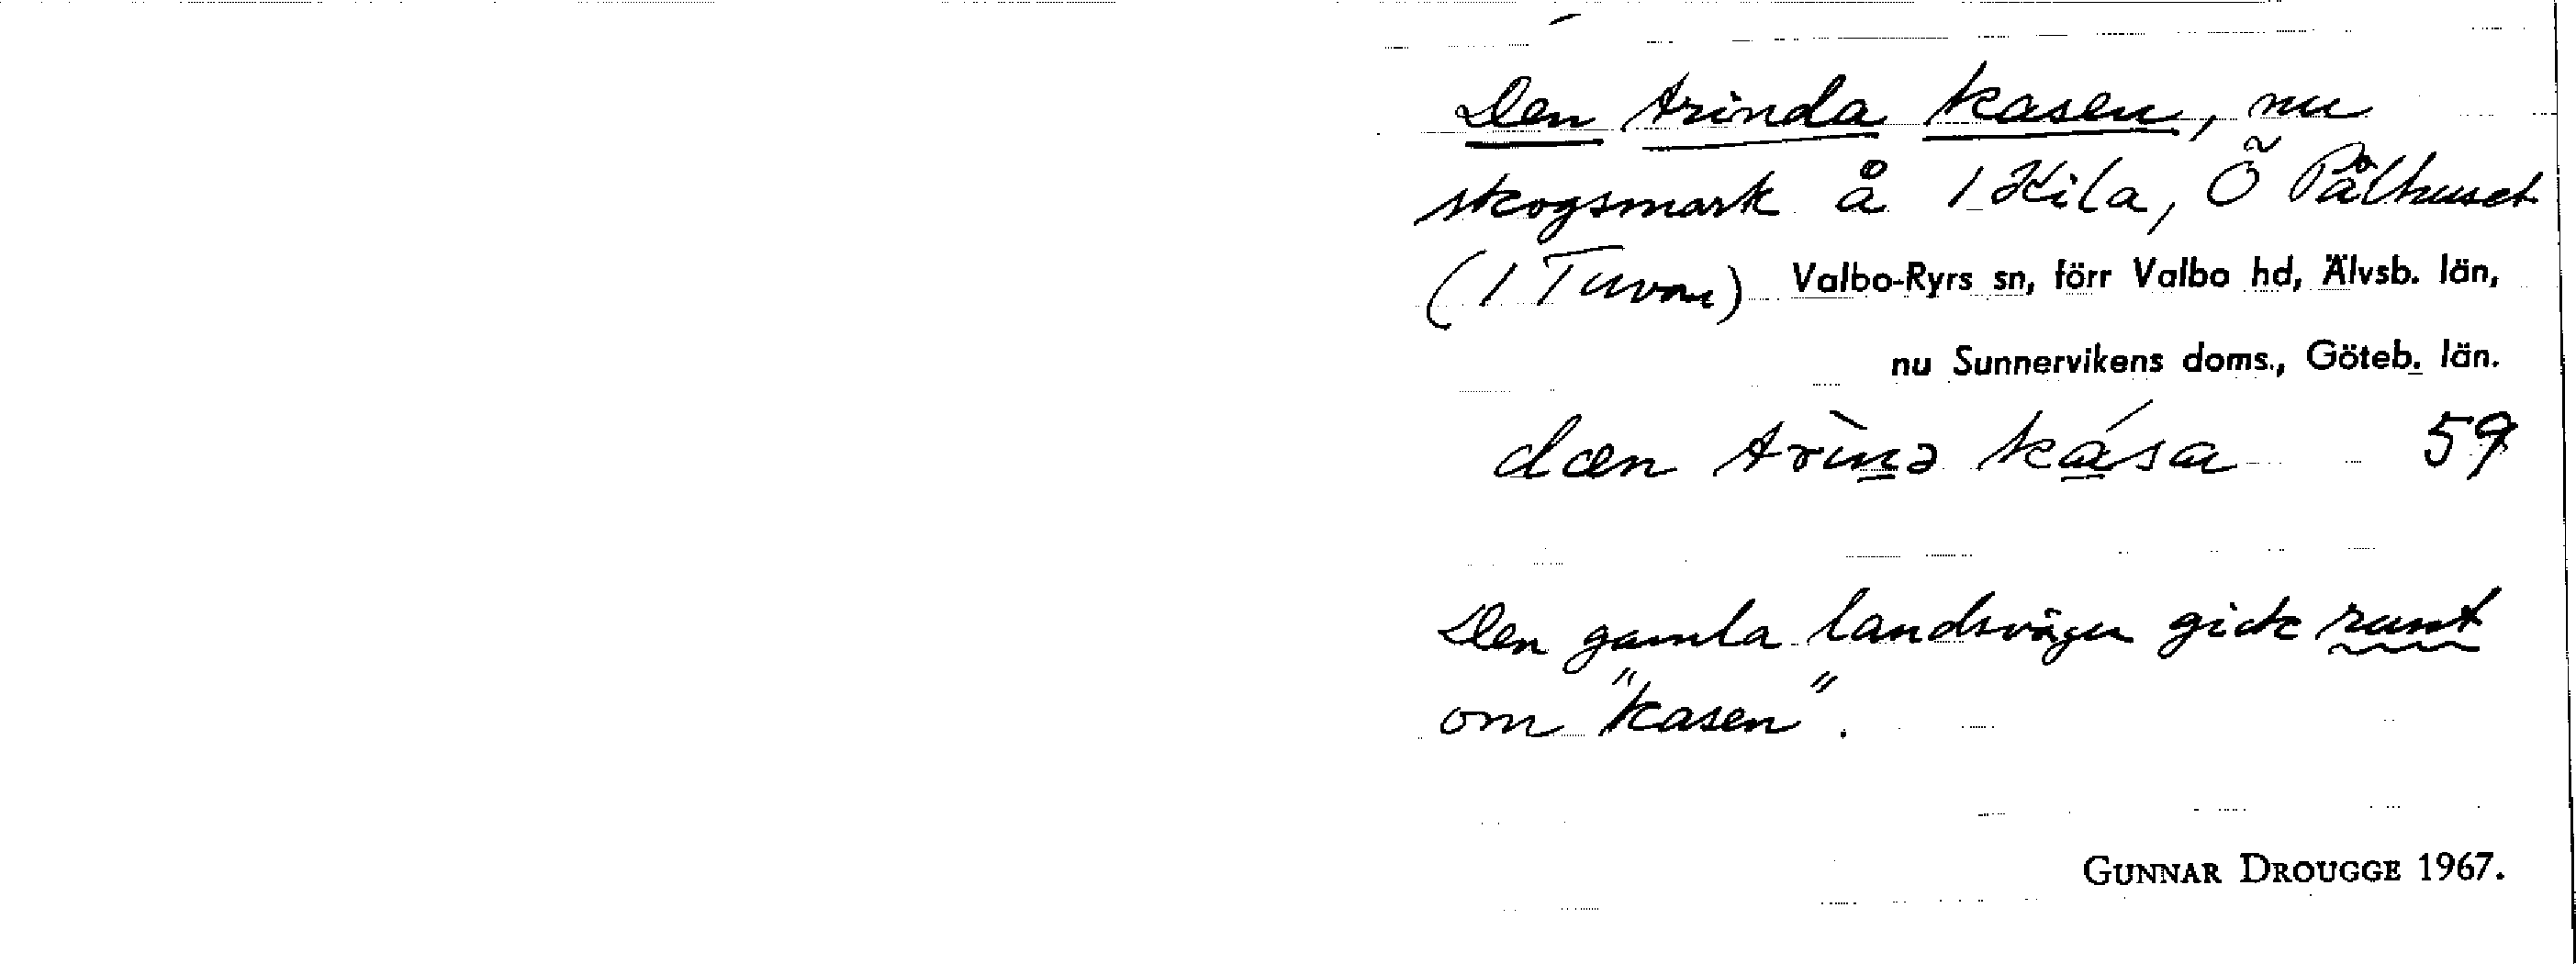 Den trinda kasen, nu
skogsmark å 1 Kila, Ö Pålhuset
(1 Tuvan) Valbo-Ryrs sn, förr Valbo hd, Älvsb. län,
nu Sunnervikens doms., Göteb. län.
dæn trìnə kása 59
Den gamla landsvägen gick runt
om "kasen".
GUNNAR DROUGGE 1967.